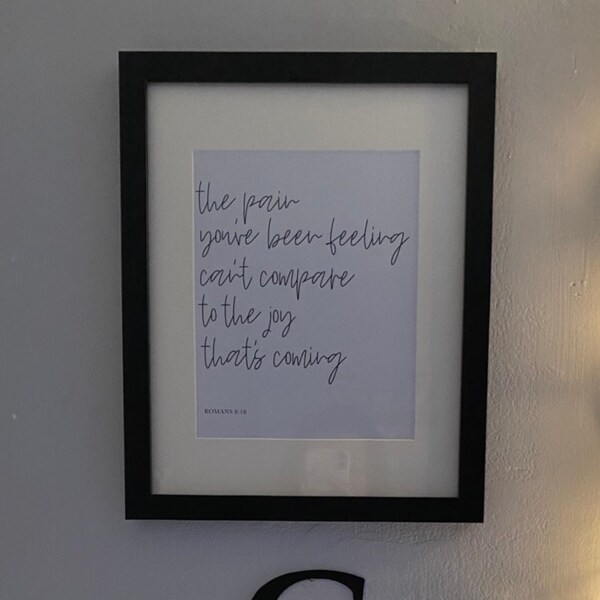 the pain
you've been feeling
can't compare
to the joy
that's coming
ROMANS 8:18